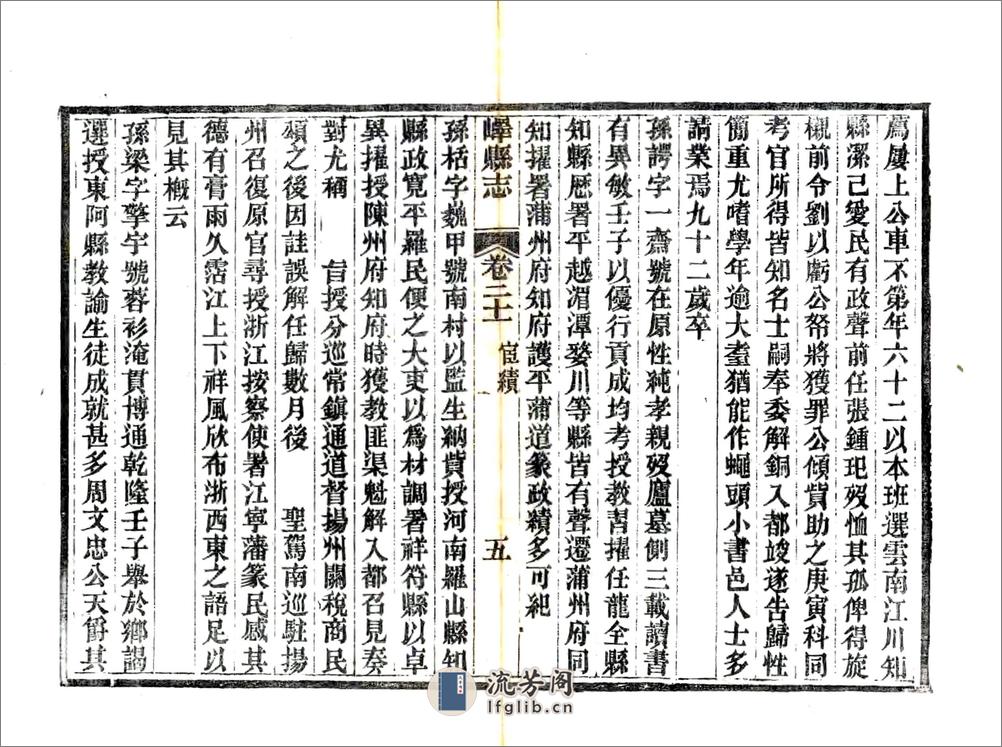 薦屢上公車不第年六十二以本班選雲南江川知
縣潔己愛民有政聲前任張鍾玘歿恤其孤俾得旋
櫬前令劉以虧公帑將獲罪公傾貲助之庚寅科同
考官所得皆知名士嗣奉委解銅入都竣遂告歸性
簡重尤嗜學年逾大耋猶能作蠅頭小書邑人士多
請業焉九十二歲卒
孫諤字一齋號在原性純孝親歿廬墓側三載讀書
有異敏壬子以優行貢成均考授教習擢任龍全縣
知縣歷署平越湄潭婺川等縣皆有聲遷蒲州府同
知擢署蒲州府知府護平蒲道篆政績多可紀
嶧縣志
卷二十
宦績
五
孫栝字巍甲號南村以監生納貲授河南羅山縣知
縣政寬平羅民便之大吏以為材調署祥符縣以卓
異擢授陳州府知府時獲教匪渠魁解入都召見奏
對尤稱 旨授分巡常鎮通道督揚州關稅商民
頌之後因詿誤解任歸數月後 聖駕南巡駐揚
州召復原官尋授浙江按察使署江寧藩篆民感其
德有膏雨久霑江上下祥風欣布浙西東之語足以
見其概云
孫梁字擎宇號蓉衫淹貫博通乾隆壬子舉於鄉謁
選授東阿縣教諭生徒成就甚多周文忠公天爵其
流芳阁
lfglib.cn